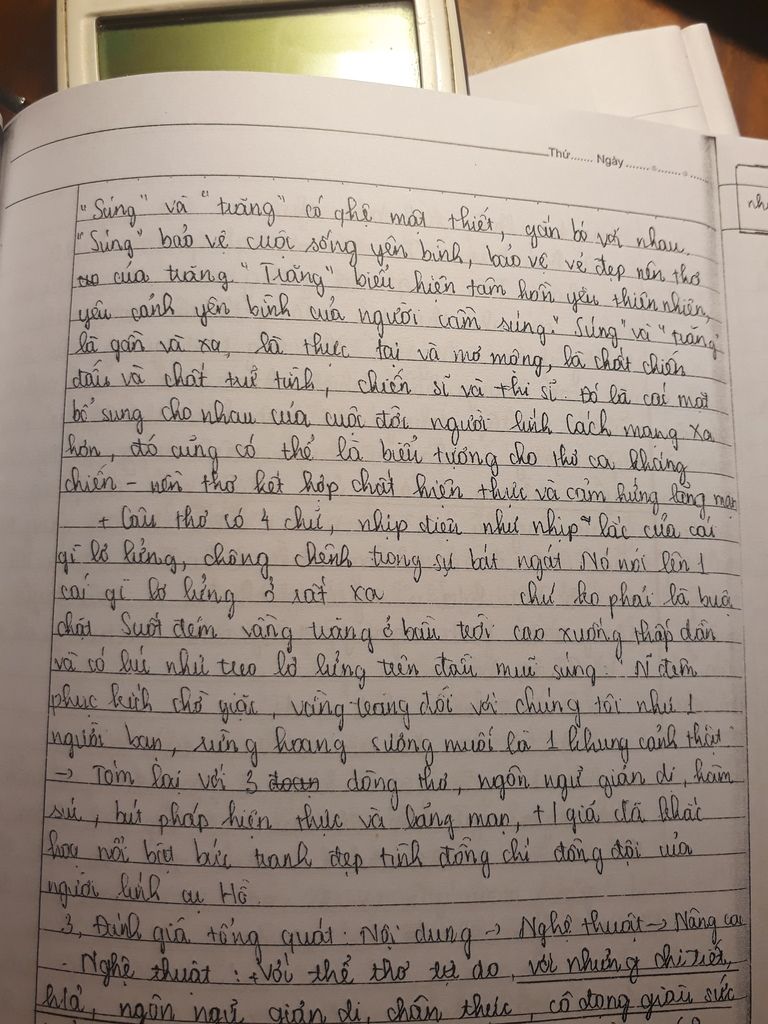 Thứ....... Ngày.......
"Súng" và "trăng" có qhệ mật thiết, gắn bó với nhau.
"Súng" bảo vệ cuộc sống yên bình, bảo vệ vẻ đẹp nên thơ
của trăng. "Trăng" biểu hiện tâm hồn yêu thiên nhiên,
yêu cảnh yên bình của người cầm súng. "Súng" và "trăng"
là gần và xa, là thực tại và mơ mộng, là chất chiến
đấu và chất trữ tình, chiến sĩ và thi sĩ. Đó là các mặt
bổ sung cho nhau của cuộc đời người lính Cách mạng Xa
hơn, đó cũng có thể là biểu tượng cho thơ ca kháng
chiến - nền thơ kết hợp chất hiện thực và cảm hứng lãng mạn
+ Câu thơ có 4 chữ, nhịp điệu như nhịp lắc của cái
gì lơ lửng, chông chênh trong sự bát ngát Nó nói lên 1
cái gì lơ lửng ở rất xa chứ ko phải là buộc
chặt Suốt đêm vầng trăng ở bầu trời cao xuống thấp dần
và có lúc như treo lơ lửng trên đầu mũi súng. đêm
phục kích chờ giặc, vầng trăng đối với chúng tôi như 1
người bạn, rừng hoang sương muối là 1 khung cảnh thật"
→ Tóm lại với 3 đoạn dòng thơ, ngôn ngữ giản dị, hàm
súc, bút pháp hiện thực và lãng mạn, t/giả đã khắc
họa nổi bật bức tranh đẹp tình đồng chí đồng đội của
người lính cụ Hồ.
3, Đánh giá tổng quát: Nội dung → Nghệ thuật → Nâng cao
- Nghệ thuật: + Với thể thơ tự do, với những chi tiết,
h/ả, ngôn ngữ giản dị, chân thực, cô đọng giàu sức